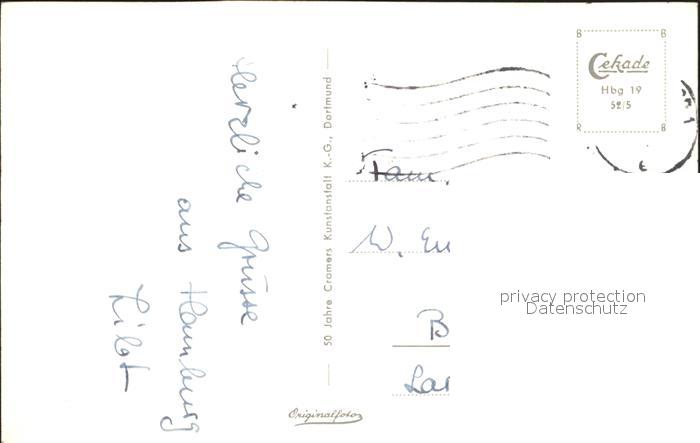 Herzliche Grüsse
aus Hamburg
Lilot
50 Jahre Cramers Kunstanstalt K.-G., Dortmund
Originalfoto
B B
Cekade
Hbg 19
52/5
R B
Fam.
W. En
B
Lar
privacy protection
Datenschutz